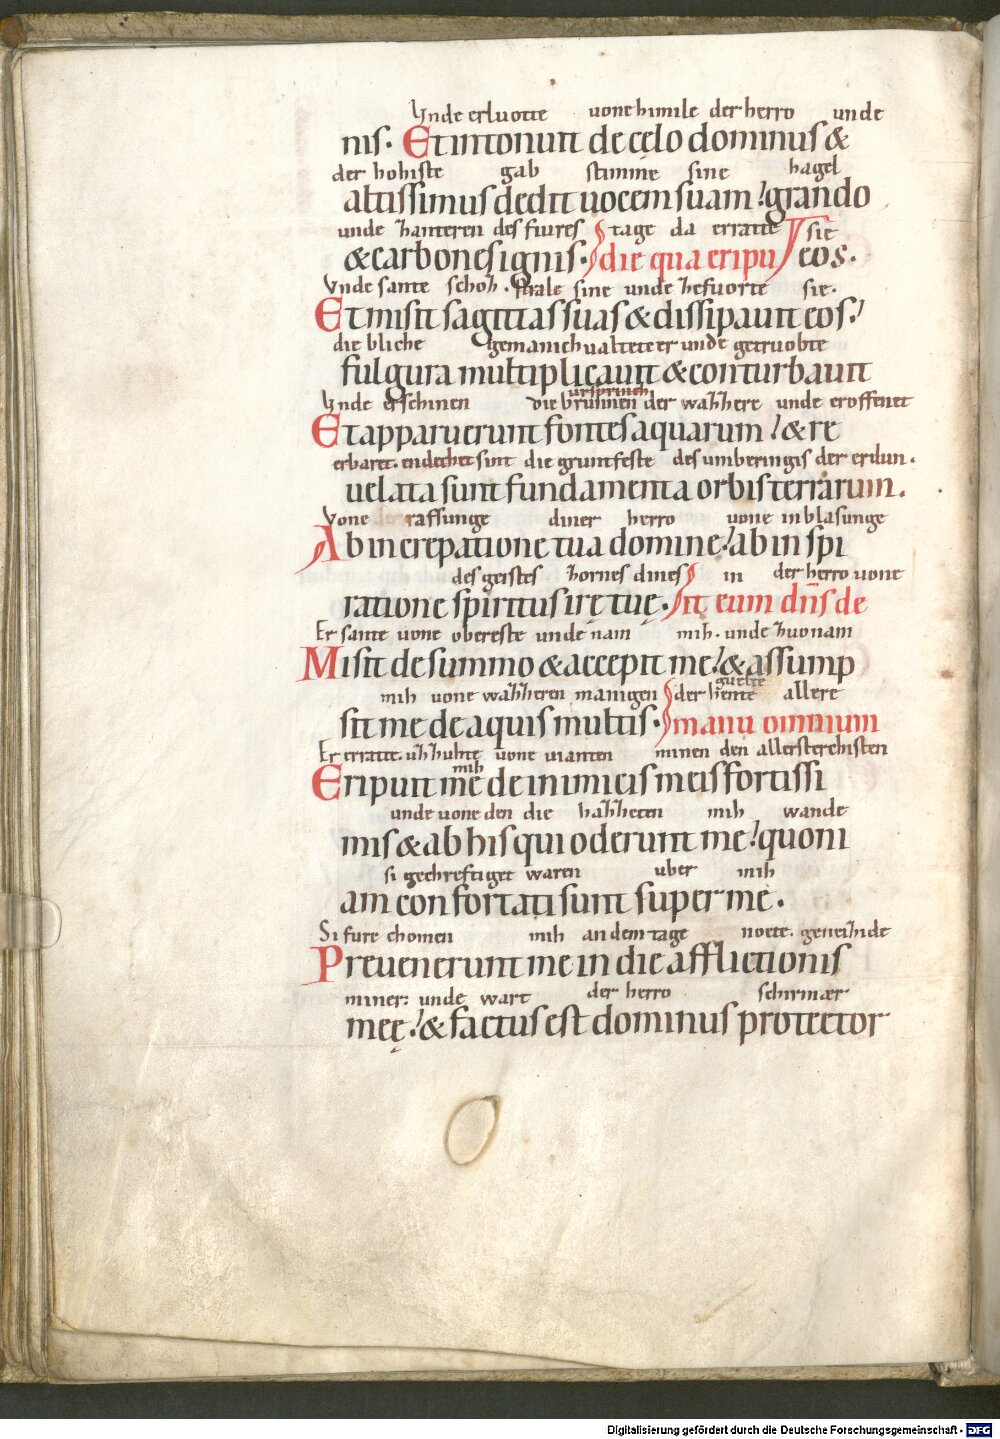 Unde erluotte uone himile der herro unde
nis. Et intonuit de cęlo dominus &
der hohiste gab stimme sine hagel
altissimus dedit uocem suam: grando
unde zanteren des fiures tage da erratte sie
& carbones ignis. die qua eripu it eos.
Unde sante schoz. strale sine unde zefuorte sie.
Et misit sagittas suas & dissipauit eos:
die bliche gemanichualtete er unde getruobte
fulgura multiplicauit & conturbauit
ursprinch
Unde erschinen die brunnen der wazzere unde eroffenet
Et apparuerunt fontes aquarum: & re
erbaret. endechet sint die gruntfeste des umberingis der erdun.
uelata sunt fundamenta orbis terrarum.
Vone raffunge diner herro uone inblasunge
Ab increpatione tua domine: ab inspi
des geistes zornes dines in der herro uone
ratione spiritus irę tuę. it eum dns de
Er sante uone obereste unde nam mih. unde zuo nam
Misit de summo & accepit me: & assump
mih uone wazzeren manigen der hente allere
sit me de aquis multis. manu omnium
Er erratte. uianten minen den allersterchisten
mih
Eripuit me de inimicis meis fortissi
unde uone den die hazzeten mih wande
mis & ab his qui oderunt me: quoni
si gechreftiget waren uber mih
am confortati sunt super me.
Si fure chomen mih an dem tage noete.
Preuenerunt me in die afflictionis
miner: unde wart der herro schirmær
meę: & factus est dominus protector
Digitalisierung gefördert durch die Deutsche Forschungsgemeinschaft - DFG